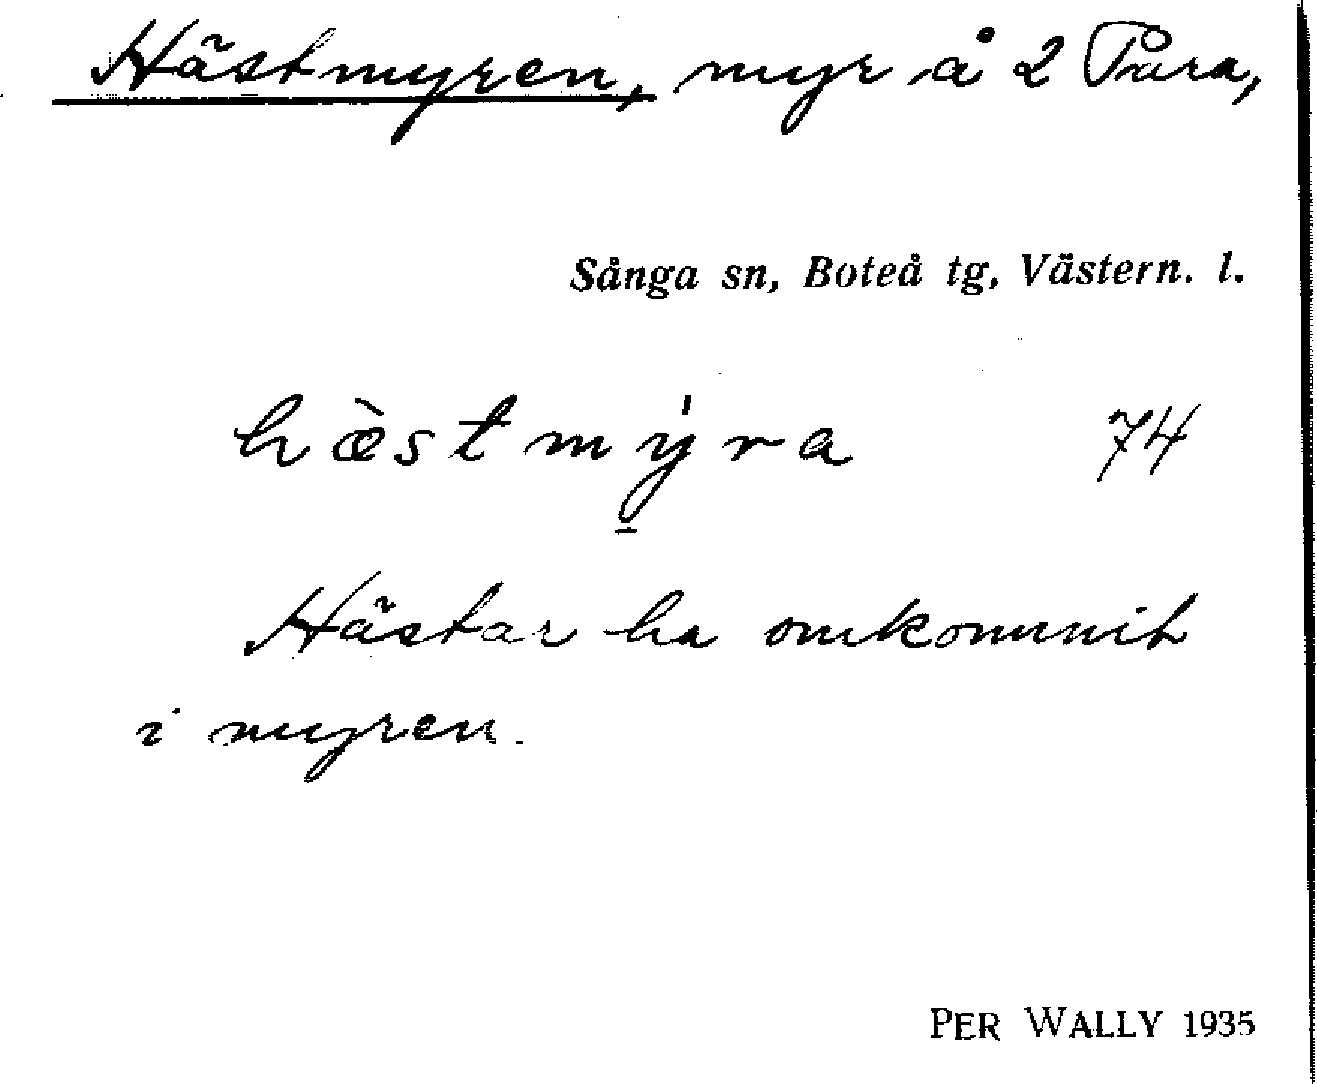 Hästmyren, myr å 2 Para,
Sånga sn, Boteå tg, Västern. l.
hæ̀stmý̱ra 74
Hästar ha omkommit
i myren.
PER WALLY 1935